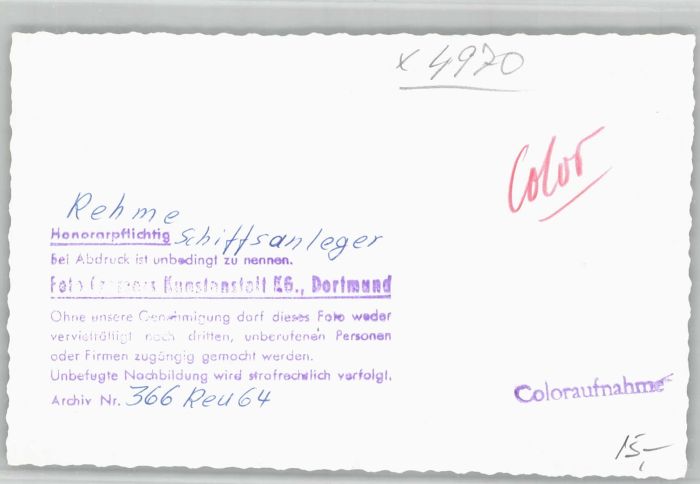 x 4970
Color
Rehme
Schiffsanleger
Honorarpflichtig
Bei Abdruck ist unbedingt zu nennen.
Foto Kunstanstalt KG., Dortmund
Ohne unsere Genehmigung darf dieses Foto weder
vervielfältigt noch dritten, unberufenen Personen
oder Firmen zugängig gemacht werden.
Unbefugte Nachbildung wird strafrechtlich verfolgt.
Archiv Nr. 366 Reu 64
Coloraufnahme
15,-